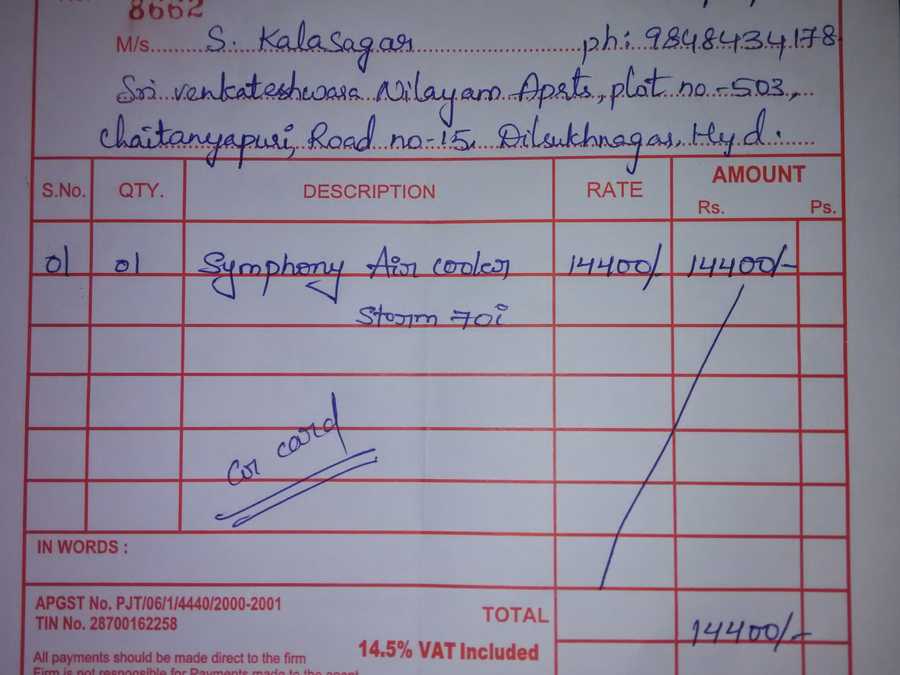 8662
M/s. S. Kalasagar ph: 9848434178
Sri venkateshwara Nilayam Aprts, plot no-503,
Chaitanyapuri, Road no-15, Dilsukhnagar, Hyd.
S.No. QTY. DESCRIPTION RATE AMOUNT
Rs. Ps.
01 01 Symphony Air cooler 14400/- 14400/-
Storm 70i
Cr card
IN WORDS :
APGST No. PJT/06/1/4440/2000-2001
TIN No. 28700162258
TOTAL 14400/-
14.5% VAT Included
All payments should be made direct to the firm
Firm is not responsible for Payments made to the agent